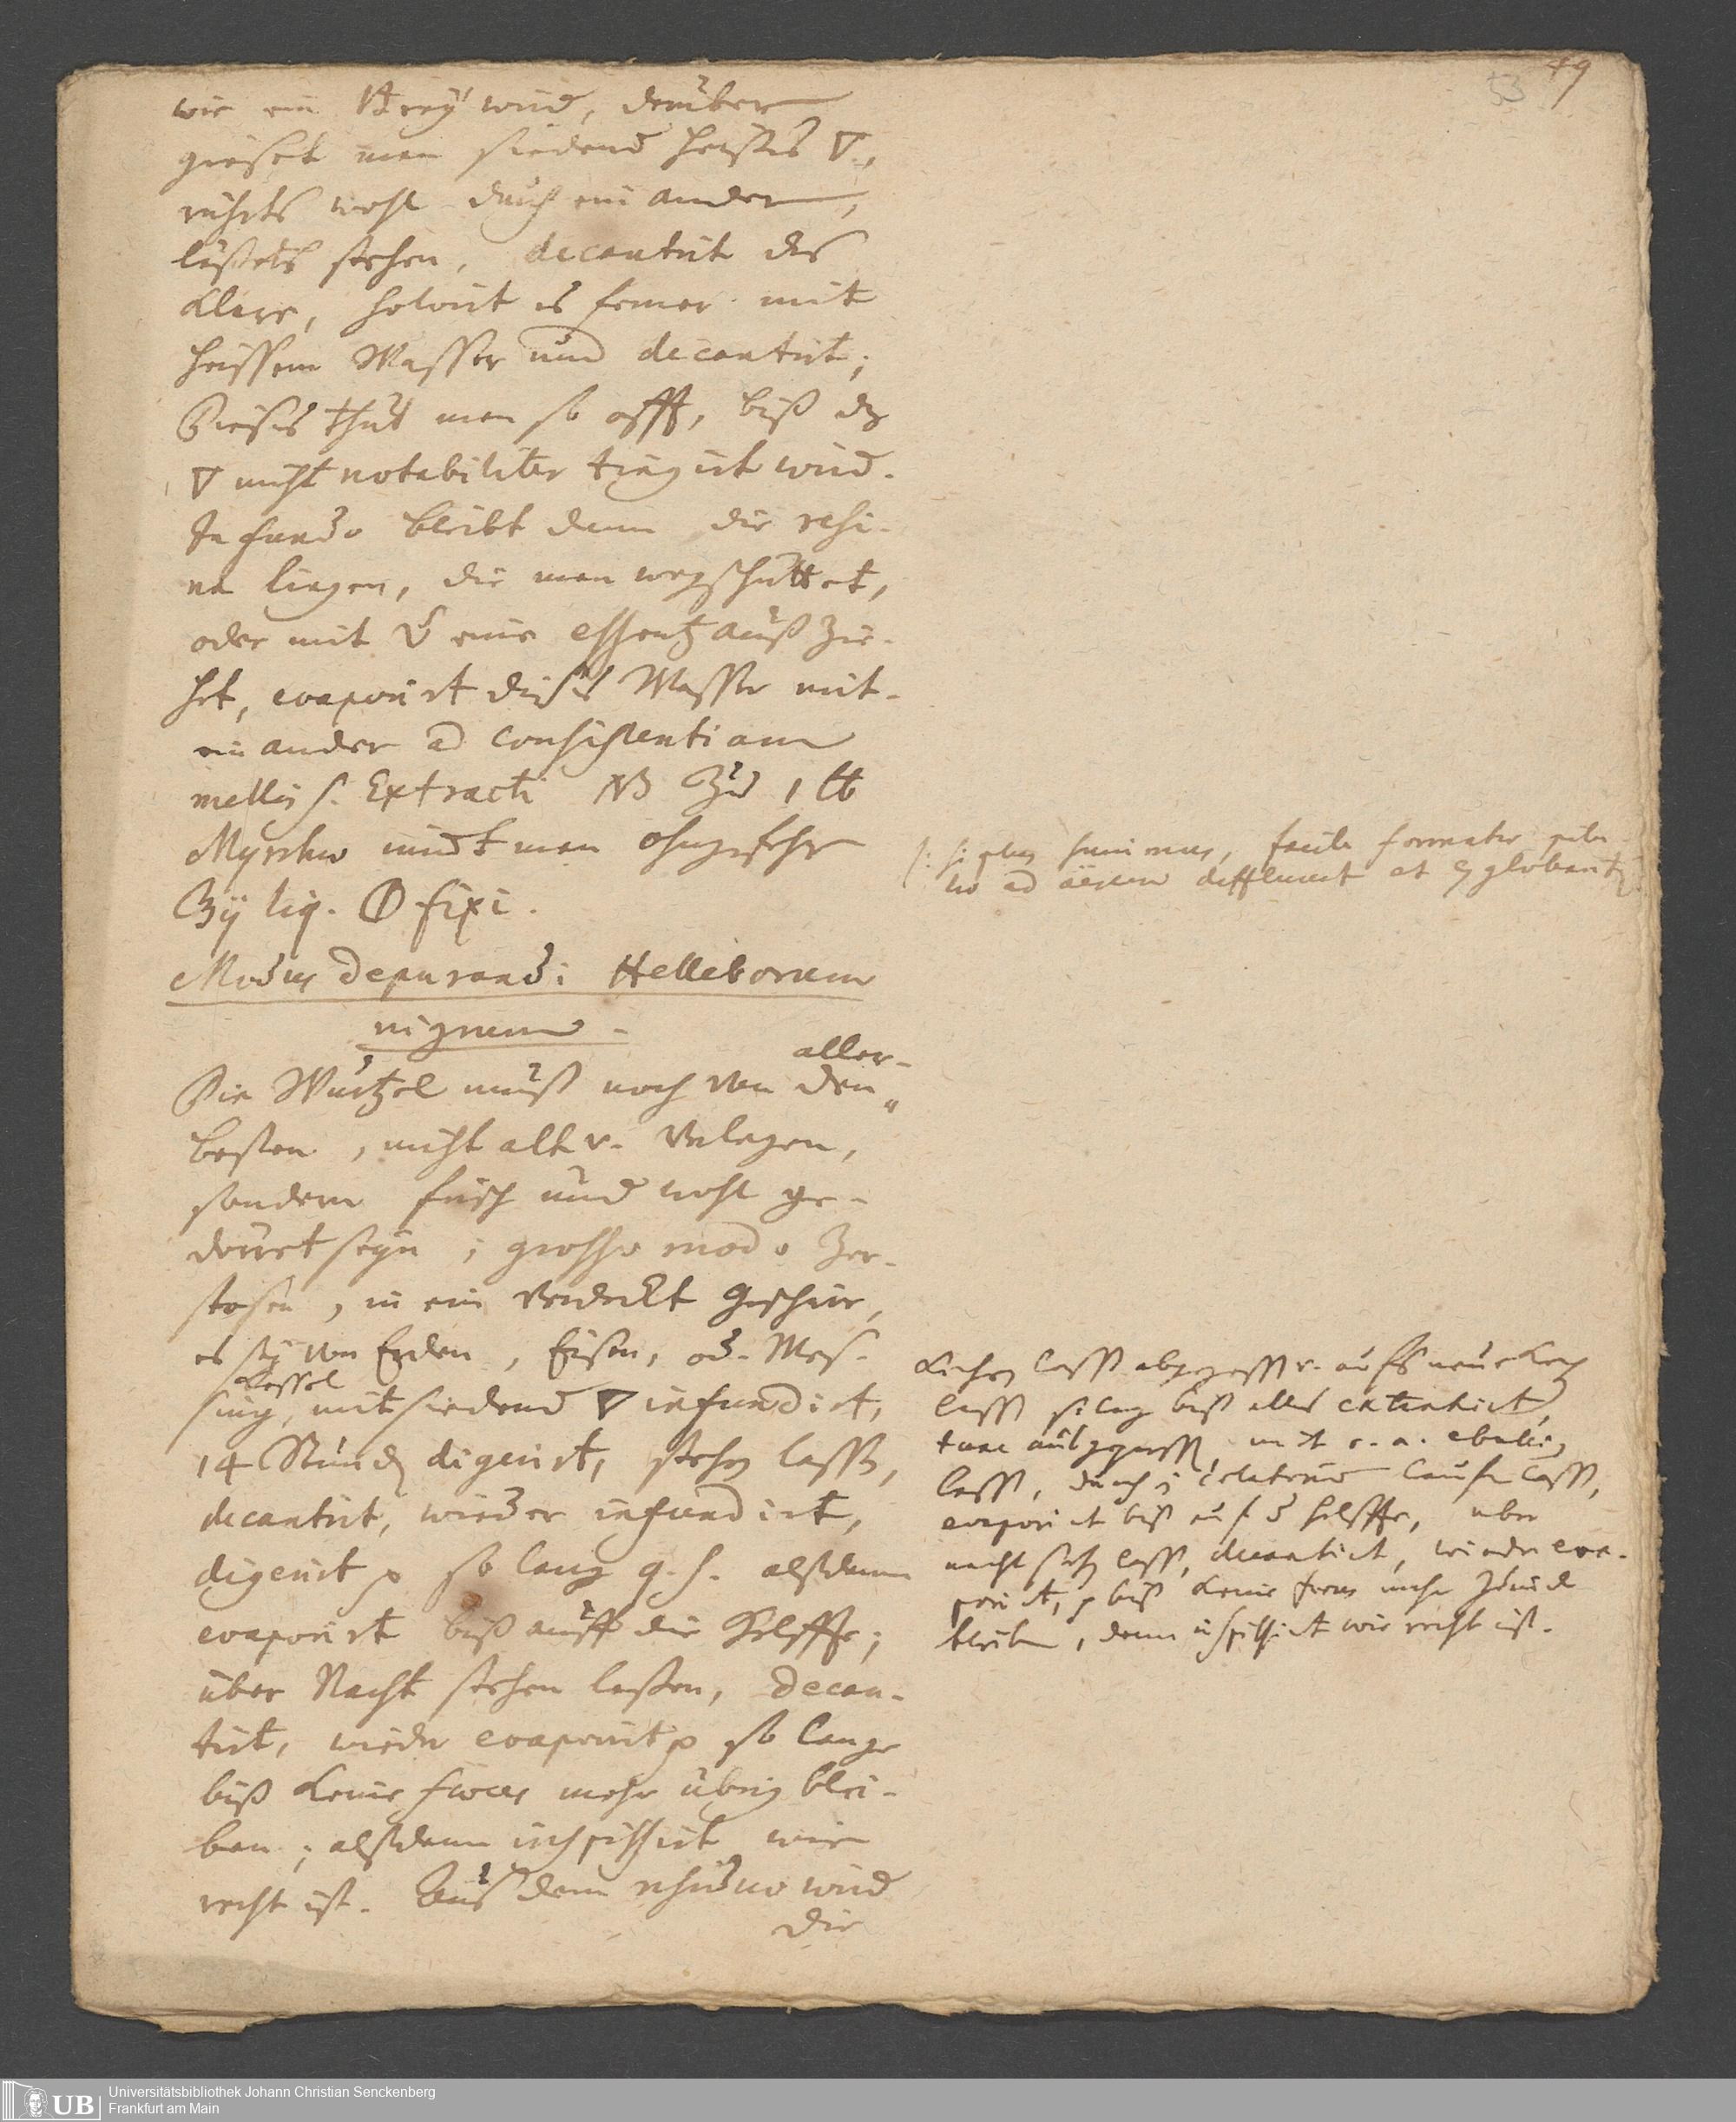 53 49
wie ein Brey wird, darüber
gieset man siedend heißes 🜄,
rührts wohl durch ein ander,
läßets stehen, decantirt das
Klare, solvirt es ferner mit
heissem Wasser und decantirt;
Dieses thut man so offt, biß dz
🜄 nicht notabiliter tingirt wird.
In fundo bleibt dann die resi-
na liegen, die man wegschüttet,
oder mit eine essentz auß zie-
het, evaporirt dieses Wasser mit-
ein ander ad consistentiam
mellis s. Extracti NB Zu 1 ℔
Myrrhae nimbt man ohngefehr
℥ij liq. 🜕 fixi.
/: si plus sumimus, facile formatae pilu-
lae ad aërem diffluunt et
Modus depurandi Helleborum
nigrum.
Die Wurtzel muß noch von den aller-
besten, nicht alt v. verlegen,
sondern frisch und wohl ge-
dörret seyn; grosso modo zer-
stosen, in ein verdeckt Geschirr,
es sey von Erden, Eisen, od. Mes-
sing Kessel, mit siedend 🜄 infundirt,
14 Stund digerirt, stehen lassen,
decantirt, wieder infundirt,
digerirt so lang q. s. alßdann
evaporirt biß auff die Helffte;
über Nacht stehen laßen, decan-
tirt, wieder evaporirt so lange
biß keine faeces mehr übrig blei-
ben; alßdann inspissirt wie
recht ist. Auß dem residuo wird
die
lass biß alles extrahirt,
lass, durch colatorium lauffen lass,
evaporirt biß auf d helffte, uber
nacht stehen lass, decantirt, wieder eva-
porirt, biß keine faeces mehr zurück
bleiben, dann inspissirt wie recht ist.
UB
Universitätsbibliothek Johann Christian Senckenberg
Frankfurt am Main